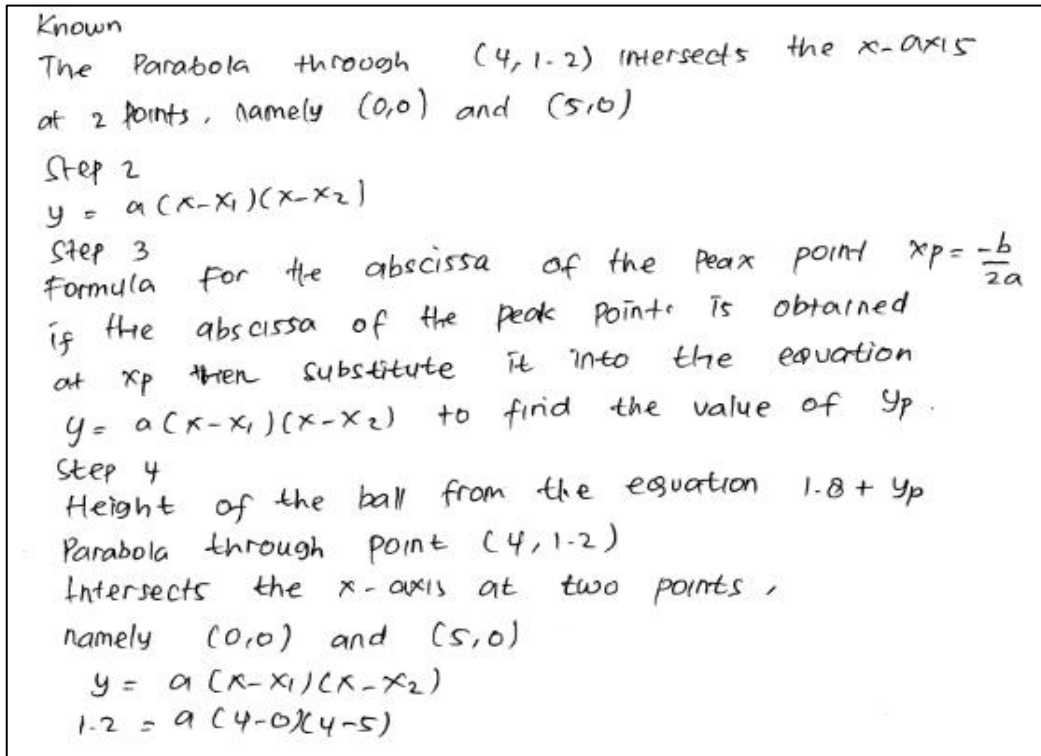 Known
The Parabola through (4, 1.2) intersects the x-axis
at 2 points, namely (0,0) and (5,0)
Step 2
y = a(x-x₁)(x-x₂)
Step 3
Formula for the abscissa of the Peax point xp = -b/2a
if the abscissa of the peak points is obtained
at xp then substitute it into the equation
y = a(x-x₁)(x-x₂) to find the value of yp.
Step 4
Height of the ball from the equation 1.8 + yp
Parabola through point (4, 1.2)
Intersects the x-axis at two points,
namely (0,0) and (5,0)
y = a(x-x₁)(x-x₂)
1.2 = a(4-0)(4-5)